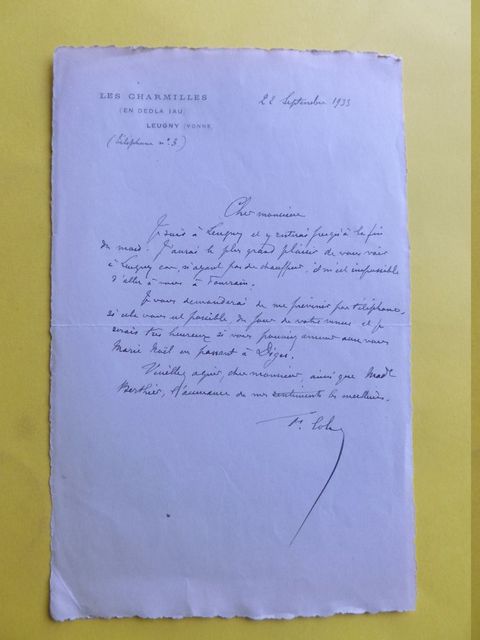 LES CHARMILLES
22 Septembre 1933
(EN DEDLA IAU)
LEUGNY (YONNE)
(Téléphone n° 3)
Cher monsieur
Je suis à Leugny et y resterai jusqu'à la fin
du mois. J'aurai le plus grand plaisir de vous voir
à Leugny car, n'ayant pas de chauffeur, il m'est impossible
d'aller à vous à Tourrain.
Je vous demanderai de me prévenir par téléphone,
si cela vous est possible du jour de votre venue et je
serais très heureux si vous pouviez amener avec vous
Marie Noël en passant à Diges.
Veuillez agréer, cher monsieur, ainsi que Made
Berthier, l'assurance de mes sentiments les meilleurs.